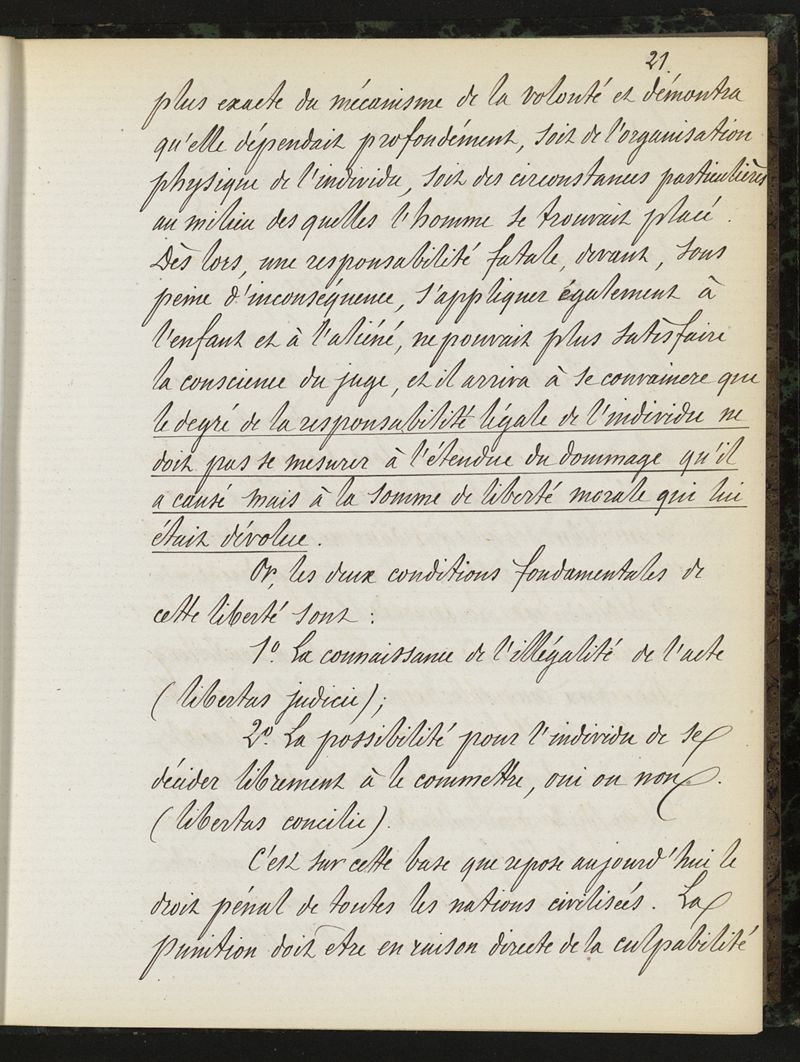 21
plus exacte du mécanisme de la volonté et démontra
qu'elle dépendait profondément, soit de l'organisation
physique de l'individu, soit des circonstances particulières
au milieu des quelles l'homme se trouvait placé.
Dès lors, une responsabilité fatale, devant, sous
peine d'inconséquence, s'appliquer également à
l'enfant et à l'aliéné, ne pouvait plus satisfaire
la conscience du juge, et il arriva à se convaincre que
le degré de la responsabilité légale de l'individu ne
doit pas se mesurer à l'étendue du dommage qu'il
a causé mais à la somme de liberté morale qui lui
était dévolue.
Or, les deux conditions fondamentales de
cette liberté sont :
1º. La connaissance de l'illégalité de l'acte
(libertas judicii);
2º. La possibilité pour l'individu de se
décider librement à le commettre, oui ou non.
(libertas concilii).
C'est sur cette base que repose aujourd'hui le
droit pénal de toutes les nations civilisées. La
punition doit être en raison directe de la culpabilité